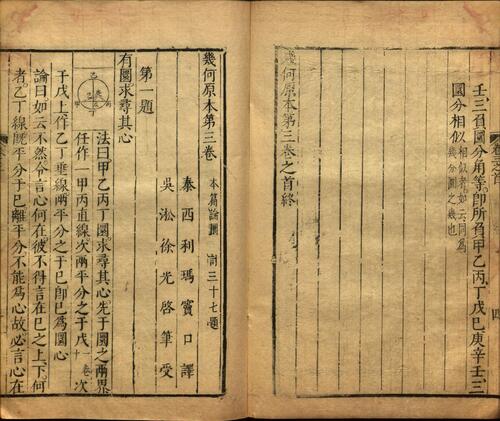 壬三負圜分角等即所負甲乙丙丁戊己庚辛壬三
圜分相似相似者如云同為
幾分圜之幾也
幾何原本第三卷之首終
幾何原本第三卷本篇論圜 計三十七題
泰西利瑪竇口譯
吳淞徐光啓筆受
第一題
有圜求尋其心
法曰甲乙丙丁圜求尋其心先于圜之兩界
任作一甲丙直線次兩平分之于戊一卷十次
于戊上作乙丁垂線兩平分之于己即己為圜心
論曰如云不然令言心何在彼不得言在己之上下何
者乙丁線既平分于己離平分不能為心故必言心在